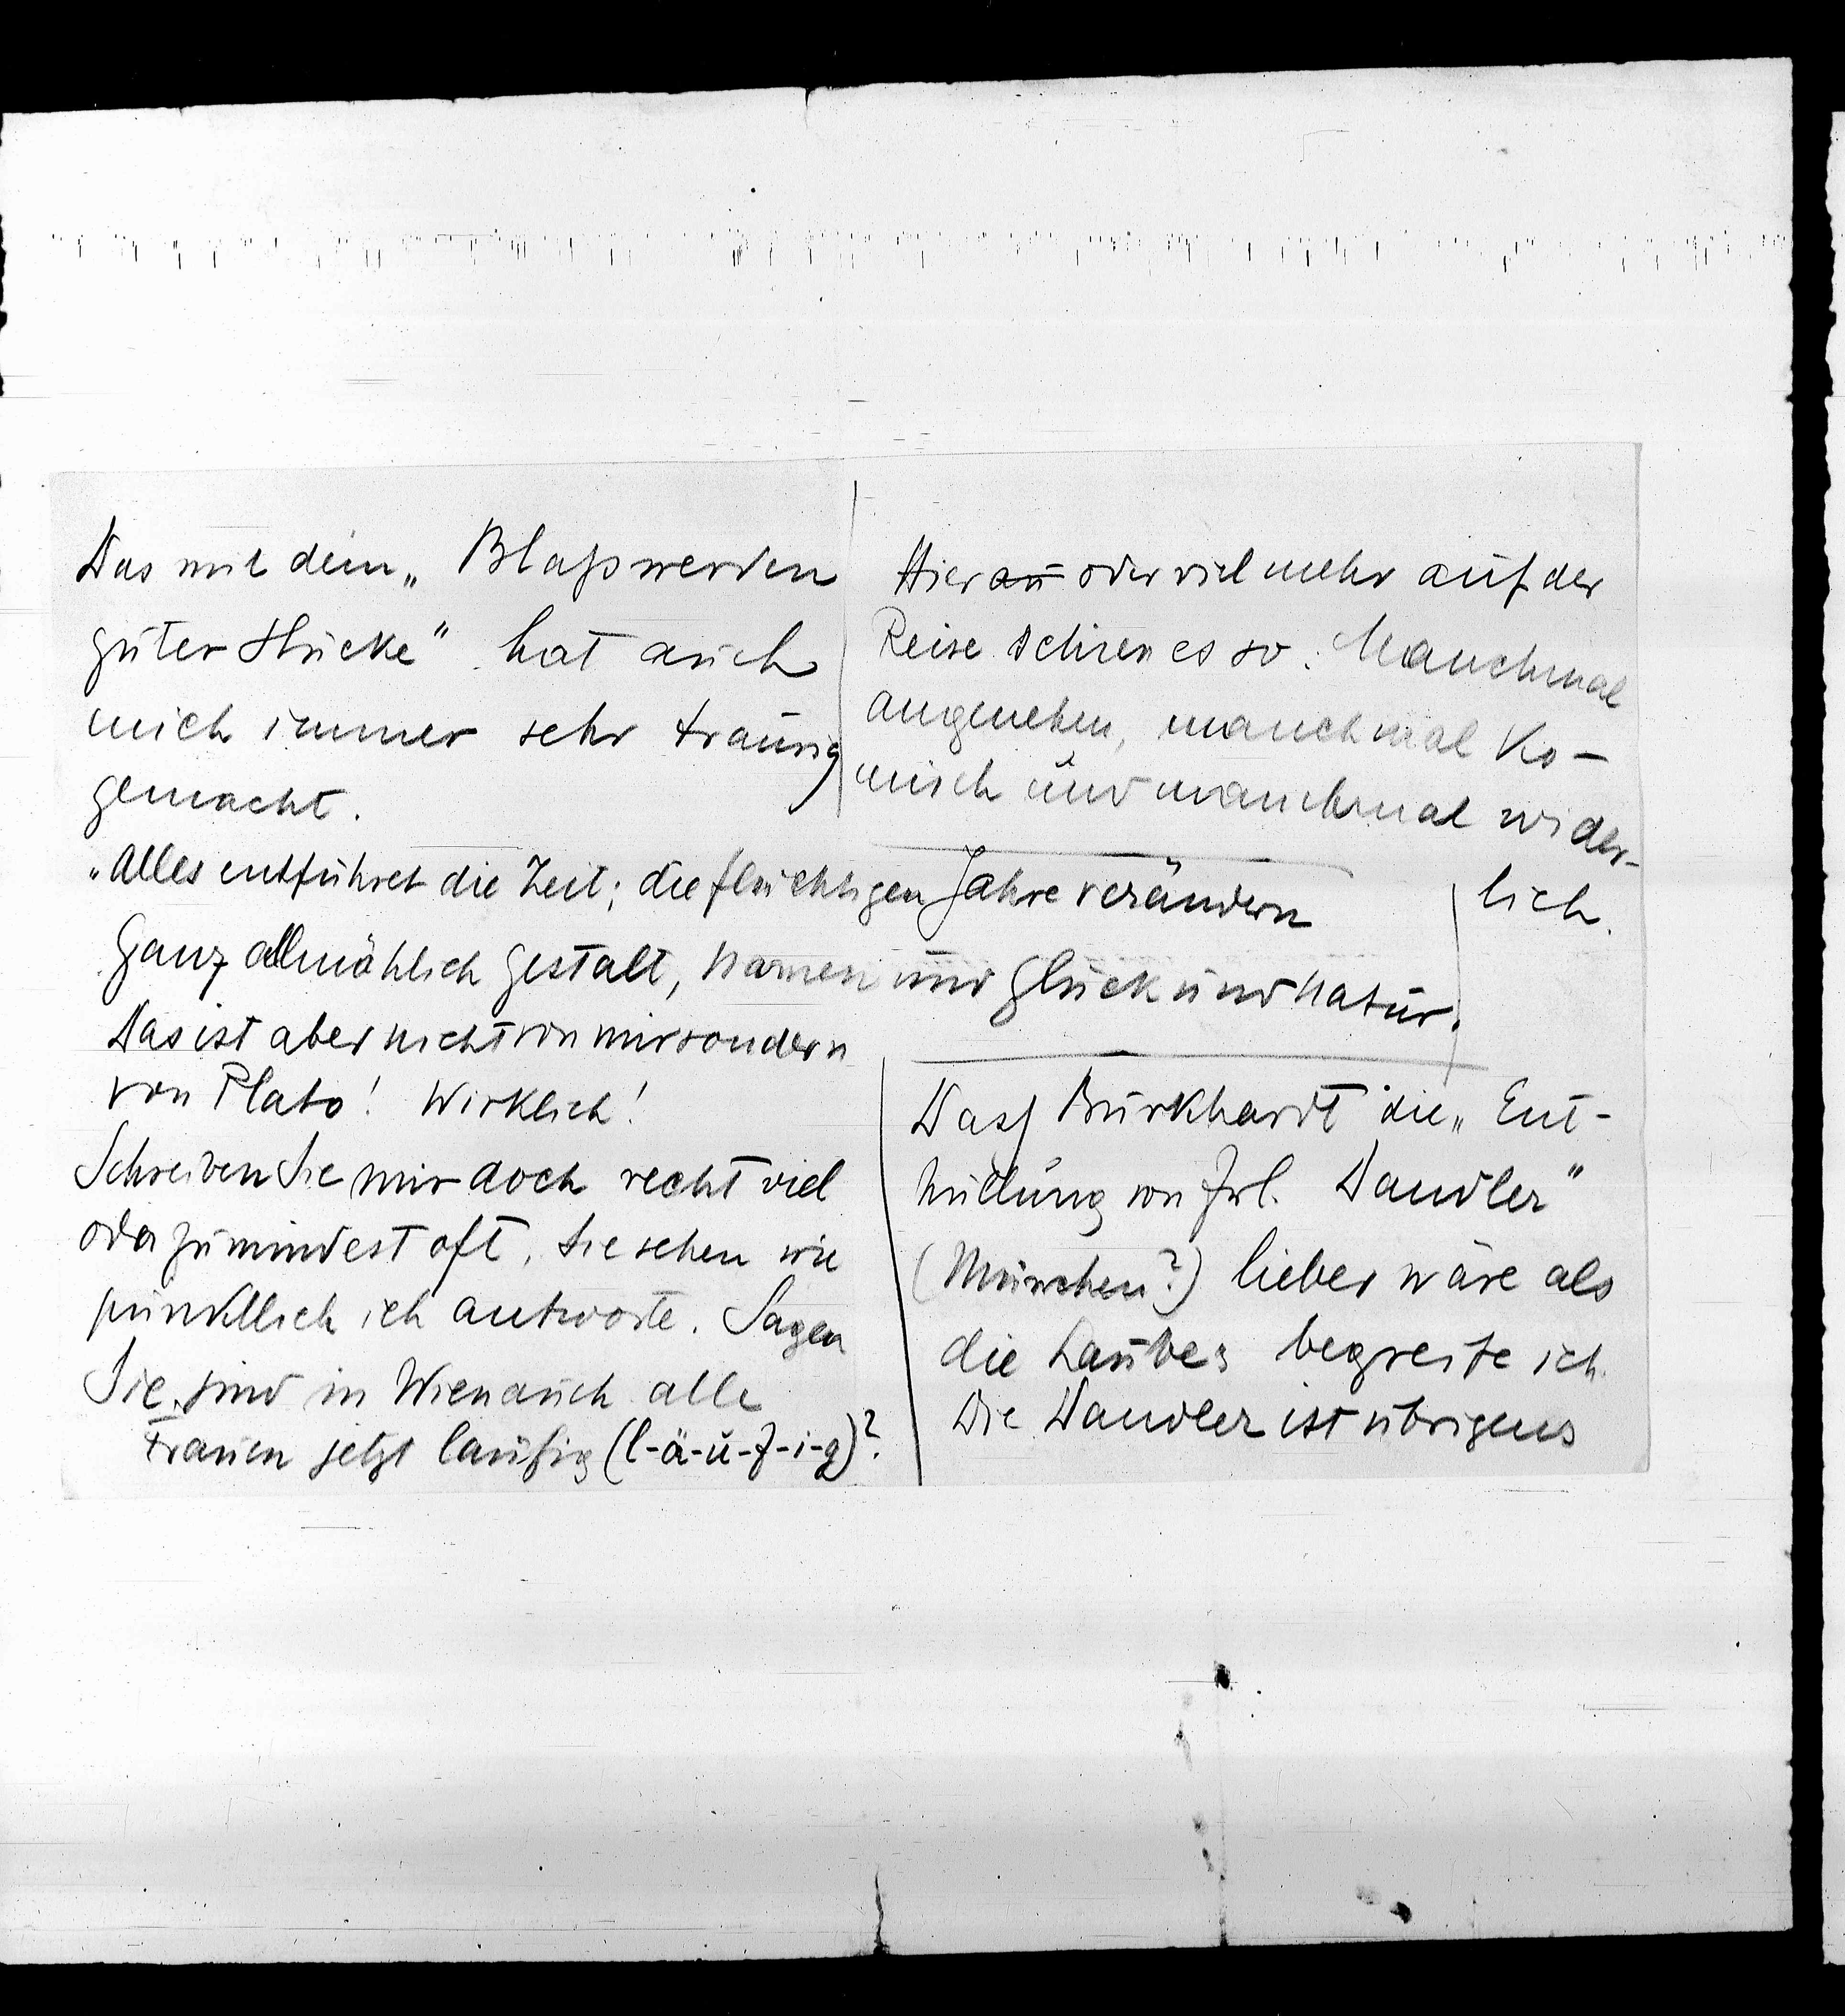 Das mit dem „Blaßwerden
guter Stücke" hat auch
mich immer sehr traurig
gemacht.
„Alles entführet die Zeit; die flüchtigen Jahre verändern
Ganz allmählich Gestalt, Namen und Glück und Natur.
Das ist aber nicht von mir sondern
von Plato! Wirklich!
Schreiben Sie mir doch recht viel
oder zumindest oft. Sie sehen wie
pünktlich ich antworte. Sagen
Sie, sind in Wien auch alle
Frauen jetzt läufig (l-ä-u-f-i-g)?
Hier an oder vielmehr auf der
Reise schien es so. Manchmal
angenehm, manchmal ko-
misch und manchmal wider-
lich.
Dass Burkhardt die „Ent-
hüllung von Frl. Dandler"
(München?) lieber wäre als
die Laubes begreife ich.
Die Dandler ist übrigens